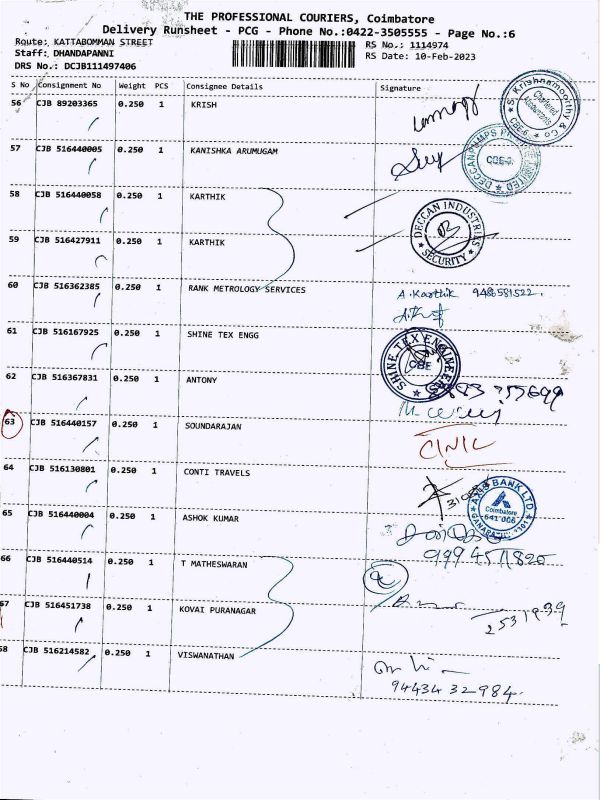 THE PROFESSIONAL COURIERS, Coimbatore
Delivery Runsheet - PCG - Phone No.:0422-3505555 - Page No.:6
Route: KATTABOMMAN STREET RS No.: 1114974
Staff: DHANDAPANNI RS Date: 10-Feb-2023
DRS No.: DCJB111497406
S No Consignment No Weight PCS Consignee Details Signature
56 CJB 89203365 0.250 1 KRISH
S. Krishnamoorthy & Co Chartered Accountants CBE-6.
57 CJB 516440005 0.250 1 KANISHKA ARUMUGAM
58 CJB 516440058 0.250 1 KARTHIK
DECCAN INDUSTRIES SECURITY
59 CJB 516427911 0.250 1 KARTHIK
60 CJB 516362385 0.250 1 RANK METROLOGY SERVICES A.Karthik
61 CJB 516167925 0.250 1 SHINE TEX ENGG
SHINE TEX ENGINEERS CBE
62 CJB 516367831 0.250 1 ANTONY
63 CJB 516440157 0.250 1 SOUNDARAJAN
64 CJB 516130801 0.250 1 CONTI TRAVELS
AXIS BANK LTD Coimbatore 641 006
65 CJB 516440004 0.250 1 ASHOK KUMAR
66 CJB 516440514 0.250 1 T MATHESWARAN
67 CJB 516451738 0.250 1 KOVAI PURANAGAR 2531939
68 CJB 516214582 0.250 1 VISWANATHAN
94434 32984.